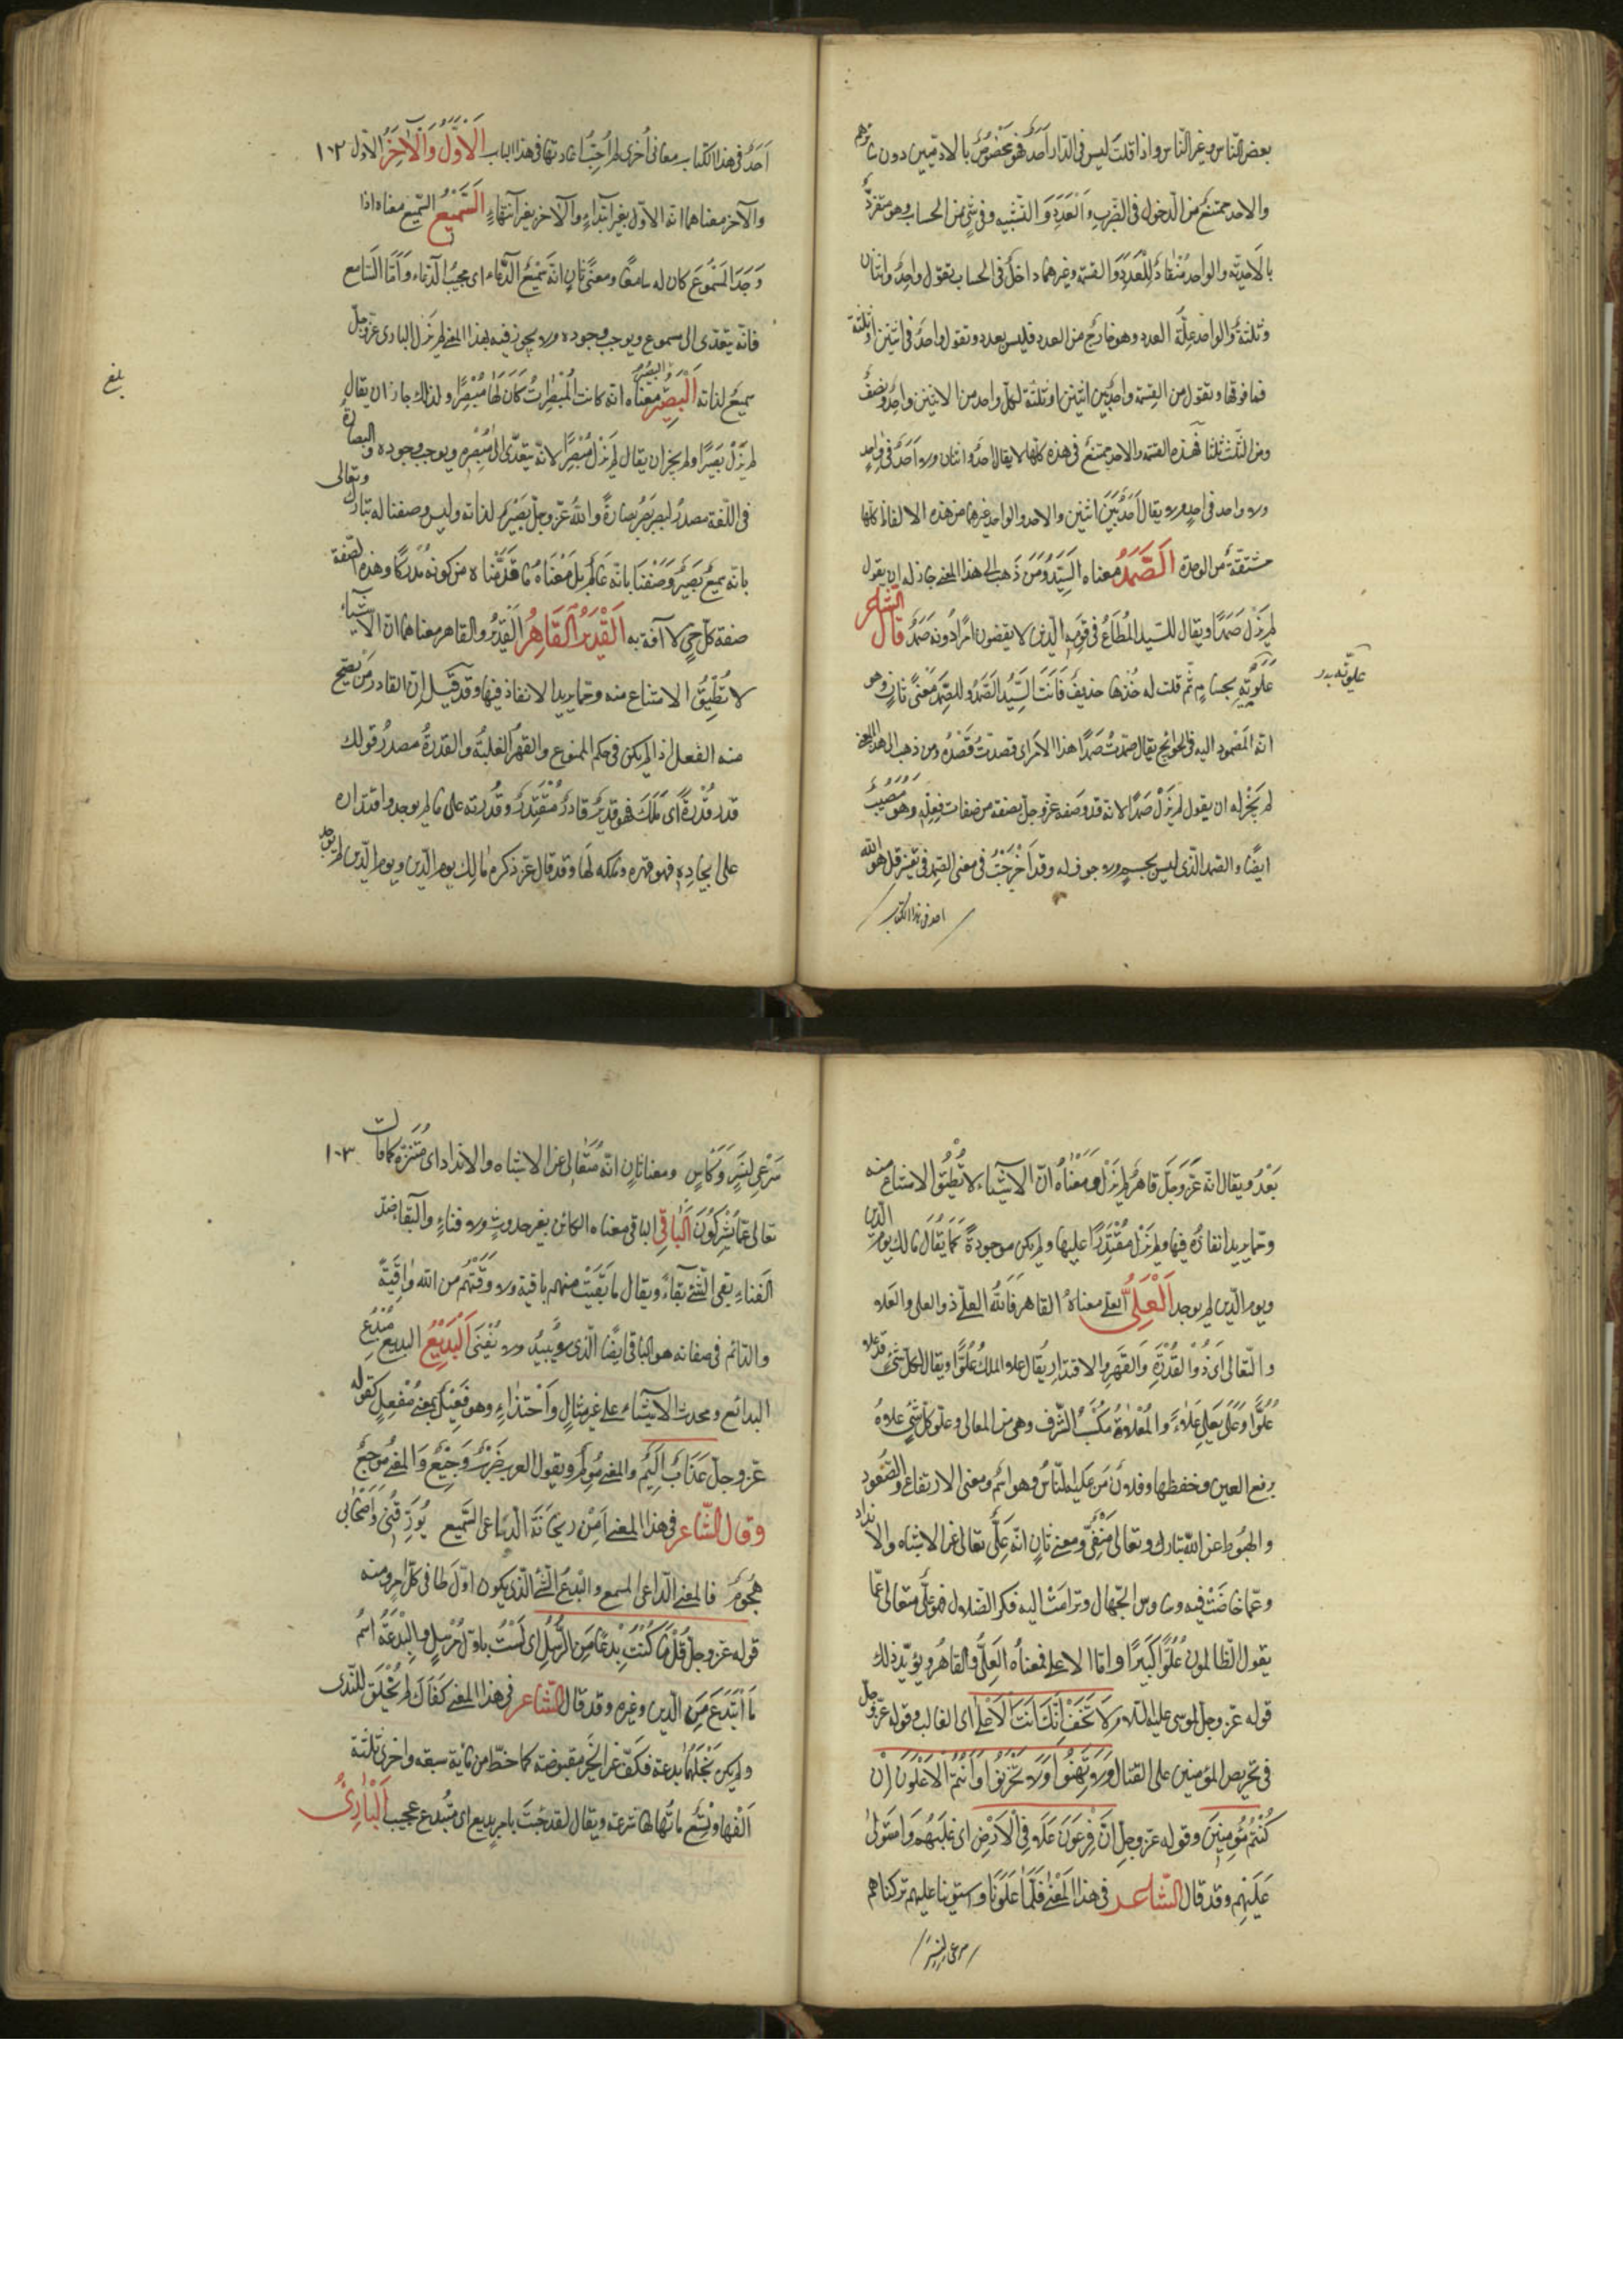 بعض الناس وغير الناس واذا قلت ليس فى الدار احد فهو مخصوص بالادميين دون سايرهم
والاحد ممتنع من الدخول فى الضرب والعدد والقسمة وفى شئ من الحساب وهو متفرد
بالاحدية والواحد منقاد للعدد والقسمة وغيرهما داخل فى الحساب تقول واحد واثنان
وثلثة والواحد علة العدد وهو خارج من العدد فليس بعدد وتقول واحد فى اثنين او ثلثة
فما فوقها وتقول من القسمة واحد بين اثنين او ثلثة لكل واحد من الاثنين واحد ونصف
ومن الثلث ثلثا فهذه القسمة والاحد ممتنع فى هذه كلها لا يقال احد واثنان ولا احد فى واحد
ولا واحد فى احد ولا يقال احد بين اثنين والاحد والواحد وغيرهما من هذه الالفاظ كلها
مشتقة من الوحدة الصمد معناه السيد ومن ذهب الى هذا المعنى جاز له ان يقول
لم يزل صمدا ويقال للسيد المطاع فى قومه الذين لا يقضون امرا دونه صمد قال الشاعر
علوته بحسام ثم قلت له خذها حذيف فانت السيد الصمد وللصمد معنى ثان وهو
انه المصمود اليه فى الحوائج يقال صمدت صمد هذا الامر اى قصدت قصده ومن ذهب الى هذا المعنى
لم يجز له ان يقول لم يزل صمدا لانه قد وصفه عز وجل بصفة من صفات فعله وهو مصيب
ايضا والصمد الذى ليس بجسم ولا جوف له وقد اخرجت فى معنى الصمد فى تفسير قل هو الله
احد فى هذا الكتاب
احد فى هذا الكتاب معانى أخرى لم أحب اعادتها فى هذا الباب الاول والآخر الاول ١٠٢
والآخر معناهما انه الاول بغير ابتداء والآخر بغير انتهاء السميع السميع معناه اذا
وجد المسموع كان له سامعا ومعنى ثان انه سميع الدعاء اى مجيب الدعاء واما السامع
فانه يتعدى الى مسموع ويوجب وجوده ولا يجوز فيه بهذا المعنى لم يزل البارى عز وجل
سميع لذاته البصير البصير معناه انه كانت المبصرات كان لها مبصرا ولذلك جاز ان يقال
لم يزل بصيرا ولم يجز ان يقال لم يزل مبصرا لانه يتعدى الى مبصر ويوجب وجوده والبصارة
فى اللغة مصدر لبصر بصر بصارة والله عز وجل بصير لذاته وليس وصفنا له تبارك وتعالى
بانه سميع بصير وصفنا بانه عالم بل معناه ما قدمناه من كونه مدركا وهذه الصفة
صفة كل حى لا آفة به القدير القاهر القدير والقاهر معناهما ان الاشياء
لا تطيق الامتناع منه ومما يريد الانفاذ فيها وقد قيل ان القادر من يصح
منه الفعل اذا لم يكن فى حكم الممنوع والقهر الغلبة والقدرة مصدر قولك
قدر قدرة اى ملك فهو قدير قادر مقتدر وقدرته على ما لم يوجد واقتداره
على ايجاده فهو قهره وملكه لها وقد قال عز ذكره مالك يوم الدين ويوم الدين لم يوجد
بلغ
بعد ويقال انه عز وجل قاهر لم يزل ومعناه ان الاشياء لا تطيق الامتناع منه
ومما يريد انفاذه فيها ولم يزل مقتدرا عليها ولم يكن موجودة كما يقال مالك يوم الدين
ويوم الدين لم يوجد العلى العلى معناه القاهر فالله العلى ذو العلى والعلاء
والتعالى اى ذو القدرة والقهر والاقتدار يقال علا الملك علوا ويقال لكل شئ قد علا
علوا وعلى يعلى علاء والمعلاة مكسب الشرف وهى من المعالى وعلو كل شئ علاه
برفع العين وخفضها وفلان من علية الناس وهو اسم ومعنى الارتفاع والصعود
والهبوط عن الله تبارك وتعالى منفى ومعنى ثان انه على تعالى عن الاشباه والانداد
وعما خاضت فيه وساوس الجهال وترامت اليه فكر الضلال فهو على متعالى عما
يقول الظالمون علوا كبيرا واما الاعلى فمعناه العلى والقاهر ويؤيد ذلك
قوله عز وجل لموسى عليه السلام لا تخف انك انت الاعلى اى الغالب وقوله عز وجل
فى تحريص المؤمنين على القتال ولا تهنوا ولا تحزنوا وانتم الاعلون ان
كنتم مؤمنين وقوله عز وجل ان فرعون علا فى الارض اى غلبهم واستولى
عليهم وقد قال الشاعر فى هذا المعنى فلما علونا واستوينا عليهم تركناهم
صرعى لنسر
صرعى لنسر وكاسر ومعنا ثان انه متعالى عن الاشباه والانداد اى متنزه كما قال ١٠٣
تعالى عما يشركون الباقى الباقى معناه الكائن بغير حدوث ولا فناء والبقاء ضد
الفناء بقى الشئ بقاء ويقال ما بقيت منهم باقية ولا وقتهم من الله واقية
والدائم فى صفاته هو الباقى ايضا الذى لا يبيد ولا يفنى البديع البديع مبدع
البدائع ومحدث الاشياء على غير مثال واحتذاء وهو فعيل بمعنى مفعل كقوله
عز وجل عذاب اليم والمعنى مولم ويقول العرب ضرب وجيع والمعنى موجع
وقال الشاعر فى هذا المعنى امن ريحانة الداعى السميع يؤرقنى واصحابى
هجوع فالمعنى الداعى المسمع والبدع الشئ الذى يكون اولا فى كل امر ومنه
قوله عز وجل قل ما كنت بدعا من الرسل اى لست باول مرسل والبدعة اسم
ما ابتدع من الدين وغيره وقد قال الشاعر فى هذا المعنى كفاك لم تخلق للندى
ولم يكن بخلهما بدعة فكف عن الخير مقبوضة كما حط من مائة سبعة واخرى ثلثة
آلفها وتسع مائها لها شرعة ويقال لقد جئت بامر بديع اى مبتدع عجيب البارئ